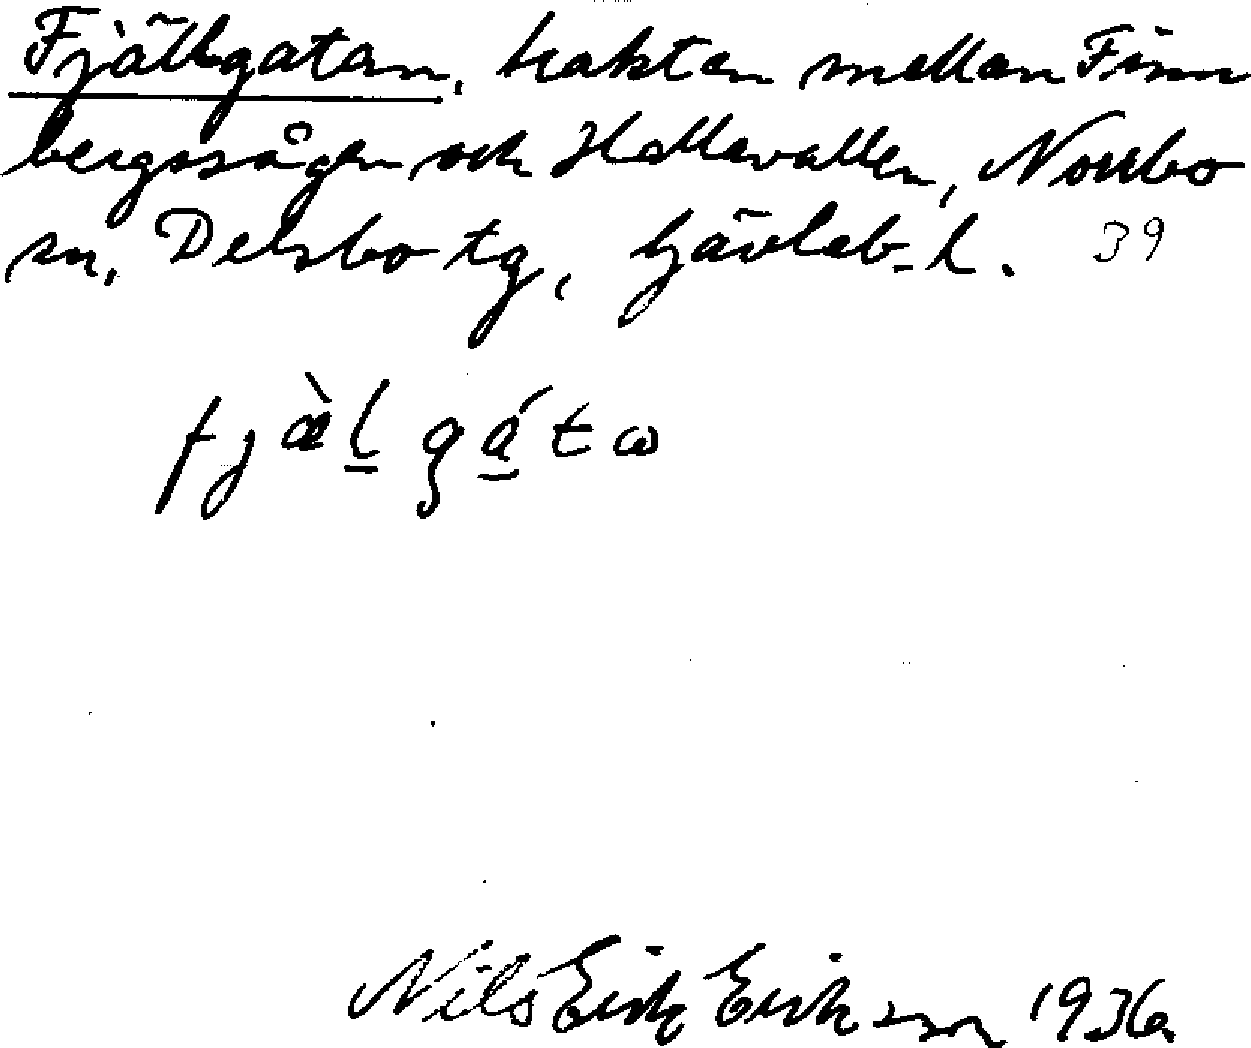 Fjällgatan, trakten mellan Finn
bergssågen och Hallevallen, Norrbo
sn, Delsbo tg, Gävleb. l. 39
fjæ̀l̲ gá̲tω
Nils Erik Erikson 1936.